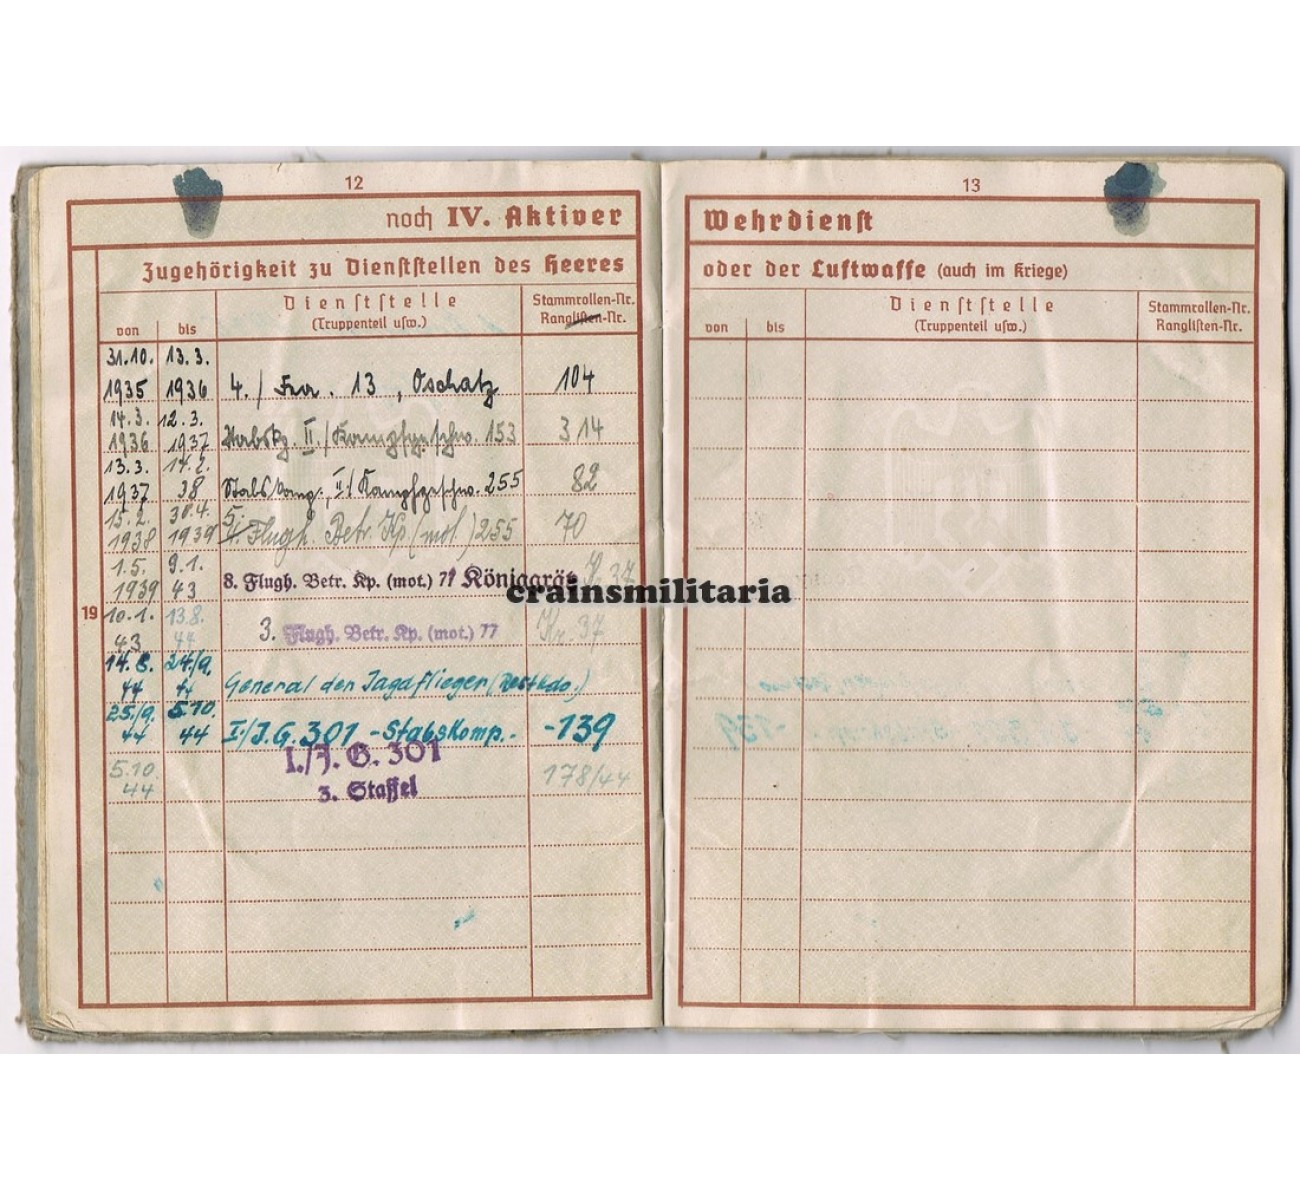 12
noch IV. Aktiver
Zugehörigkeit zu Dienststellen des Heeres
von bis
Dienststelle
(Truppenteil usw.)
Stammrollen-Nr.
Ranglisten-Nr.
31.10. 13.3.
1935 1936 4./ 13, Oschatz 104
14.3. 12.3.
1936 1937 II./Kampfgeschw. 153 314
13.3. 14.2.
1937 38 Stabskomp., II./Kampfgeschw. 255 82
15.2. 30.4. 5.
1938 1939 Flugh. Betr. Kp (mot.) 255 70
1.5. 9.1.
1939 43 8. Flugh. Betr. Kp. (mot.) 71 Königgrätz K. 37
19 10.1. 13.8.
43 44 3. Flugh. Betr. Kp. (mot.) 77 Kr. 37
14.8. 24./9.
44 44 General der Jagdflieger (Restkdo.)
25./9. 5.10.
44 44 I./J.G. 301 - Stabskomp. - -139
5.10.
44 178/44
I./J. G. 301
3. Staffel
13
Wehrdienst
oder der Luftwaffe (auch im Kriege)
von bis
Dienststelle
(Truppenteil usw.)
Stammrollen-Nr.
Ranglisten-Nr.
crainsmilitaria